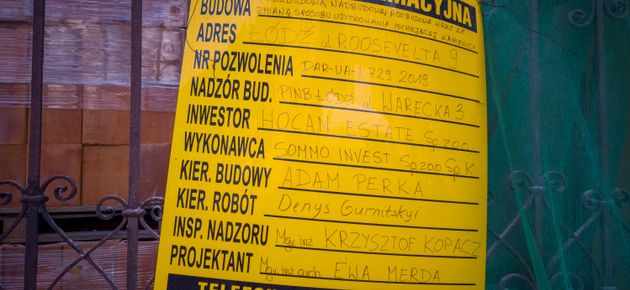 CYJNA
BUDOWA PRZEBUDOWA, NADBUDOWA, ROZBUDOWA WRAZ ZE
ZMIANĄ SPOSOBU UŻYTKOWANIA ISTNIEJĄCEJ KAMIENICY
ADRES ŁÓDŹ ul. ROOSEVELTA 9
NR POZWOLENIA DAR-UA-I.729.2019
NADZÓR BUD. PINB ŁÓDŹ ul. WARECKA 3
INWESTOR HOCAN ESTATE Sp. zoo
WYKONAWCA SOMMO INVEST Sp zoo Sp K
KIER. BUDOWY ADAM PERKA
KIER. ROBÓT Denys Gurnitskyi
INSP. NADZORU Mgr inż KRZYSZTOF KOPACZ
PROJEKTANT Mgr inż arch. EWA MERDA